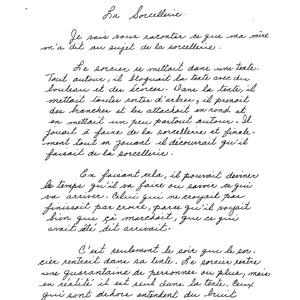 La Sorcellerie.
Je vais vous raconter ce que ma mère
m'a dit au sujet de la sorcellerie.
Le sorcier se mettait dans une tente.
Tout autour, il bloquait la tente avec du
bouleau et des écorces. Dans la tente, il
mettait toutes sortes d'arbres, il prenait
des branches et les attachait en rond et
en mettait un peu partout autour. Il
jouait à faire de la sorcellerie et finale-
ment tout en jouant il découvrait qu'il
faisait de la sorcellerie.
En faisant cela, il pouvait deviner
le temps qu'il va faire ou savoir ce qui
va arriver. Celui qui ne croyait pas
finissait par croire, parce qu'il voyait
bien que ça marchait, que ce qui
avait été dit arrivait.
C'est seulement le soir que le sor-
cier rentrait dans sa tente. Le sorcier rentre
une quarantaine de personnes ou plus, mais
en réalité il est seul dans la tente. Ceux
qui sont dehors entendent du bruit